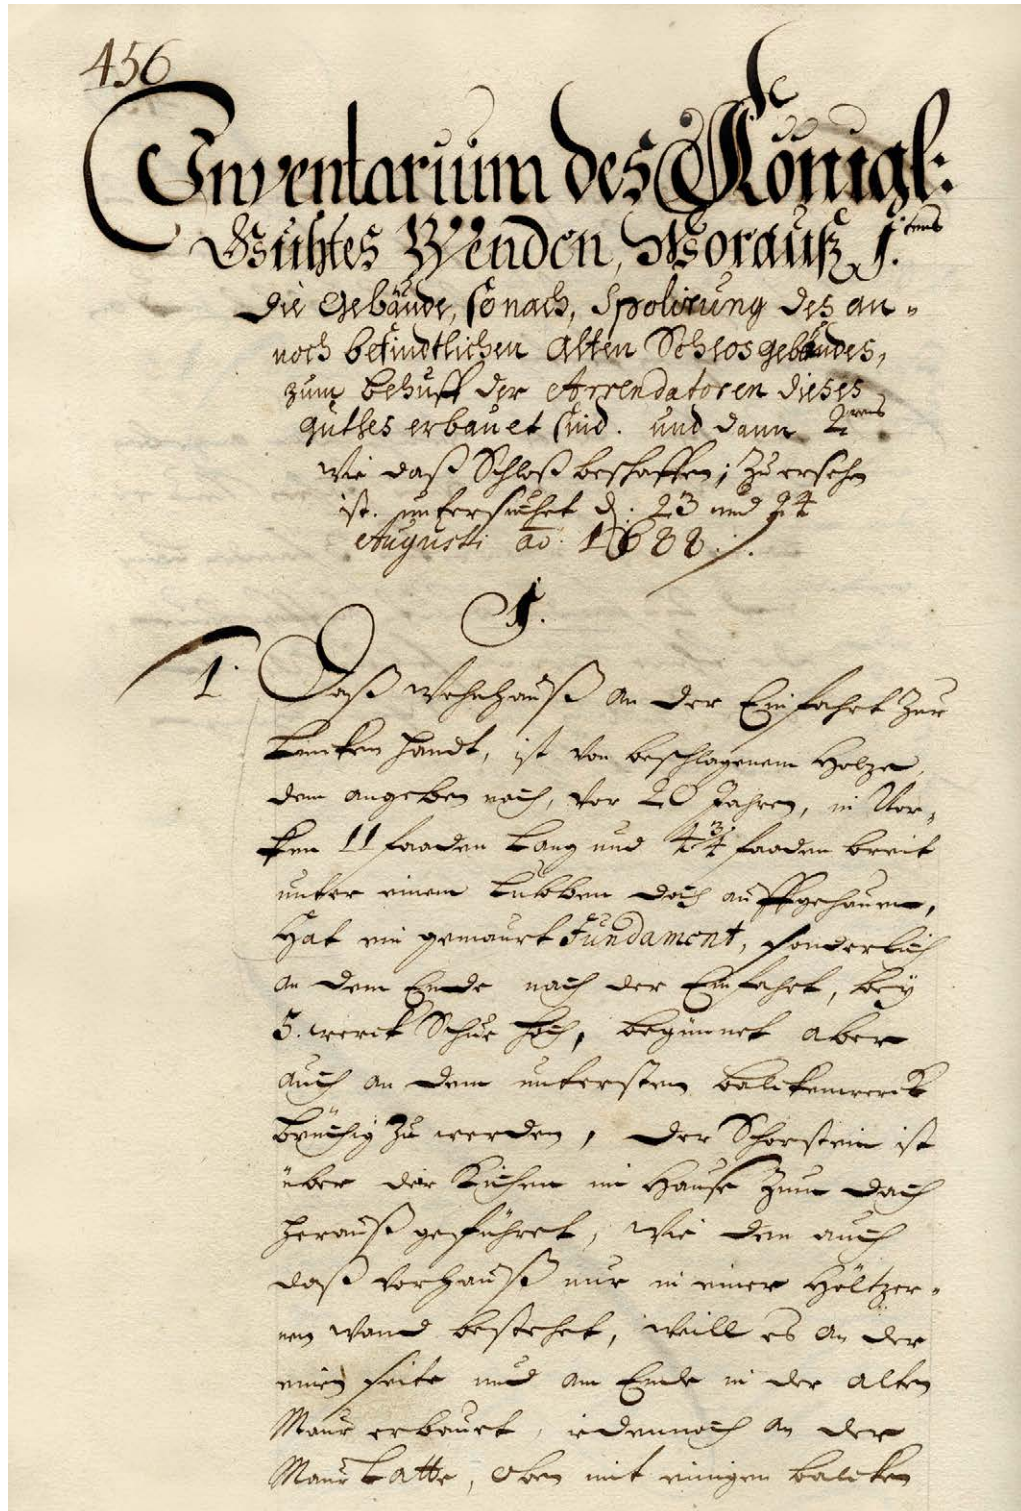 456
Inventarium des Königl:
Guhtes Wenden, Worauß 1.tens
die Gebäude, so nach, Spolirung des an-
noch befindtlichen Alten Schlosgebäudes,
zum behuff der Arrendatoren dieses
guthes erbauet sind. und dann 2tens
Wie daß Schloß beschaffen; Zu ersehen
ist. untersuchet d. 23 und 24
Augusti ao: 1688.
1.
1. Daß Wohnhauß an der Einfahrt zur
Lincken Handt, ist von beschlagenem Holze,
dem angeben nach, vor 20 Jahren, in
11 faaden Lang und 4 3/4 faaden breit
unter einem Lubben dach auffgehauen,
Hat ein gemaurt Fundament, sonderlich
an dem Ende nach der Einfahrt, beÿ
5. werck Schue hoch, beginnet aber
auch an dem untersten balckenwerck
brüchig zu werden, der Schorstein ist
über der Küchen im Hause zum dach
herauß geführet, Wie den auch
daß vorhauß nur in einer Höltzer-
nen Wand bestehet, Weill es an der
einen seite und am Ende in der alten
Maur erbauet, iedennoch an der
Maur Latte, oben mit einigen balcken